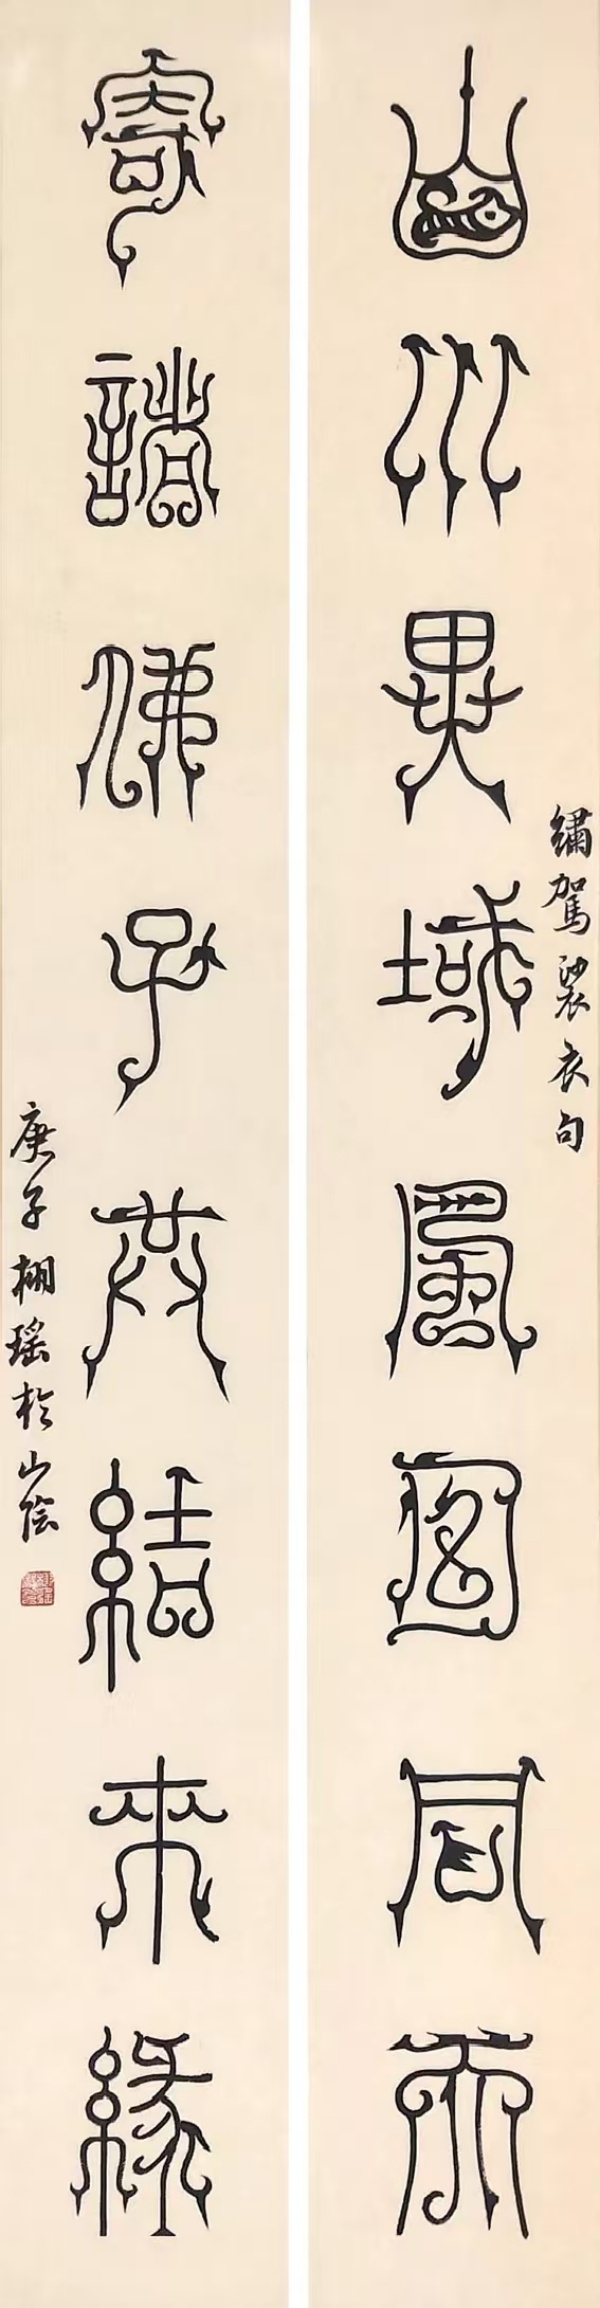 山川異域風月同天
寄諸佛子共結來緣
繡駕袈衣句
庚子栩瑤於山陰